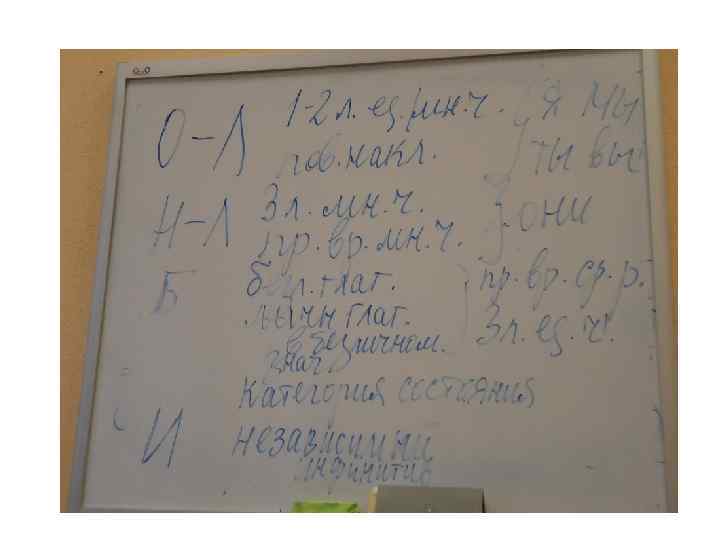 О-Л 1-2 л. ед./мн.ч. } я мы
пов.накл. ты вы
Н-Л 3 л. мн.ч. } они
пр.вр.мн.ч.
Б безл.глаг. } пр.вр.ср.р.
личн глаг. 3 л.ед.ч.
в безличном.
знач
категория состояния
И независимый
инфинитив